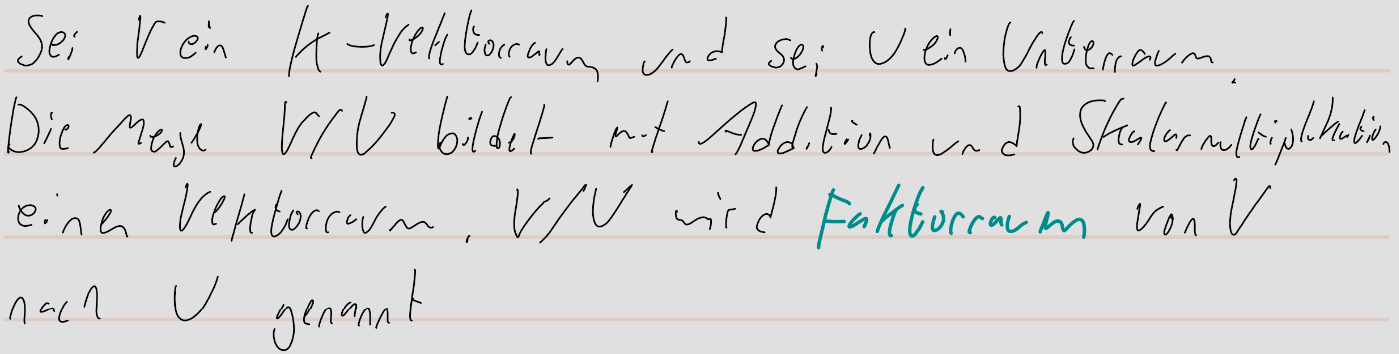 Sei V ein K-Vektorraum und sei U ein Unterraum.
Die Menge V/U bildet mit Addition und Skalarmultiplikation
einen Vektorraum. V/U wird Faktorraum von V
nach U genannt